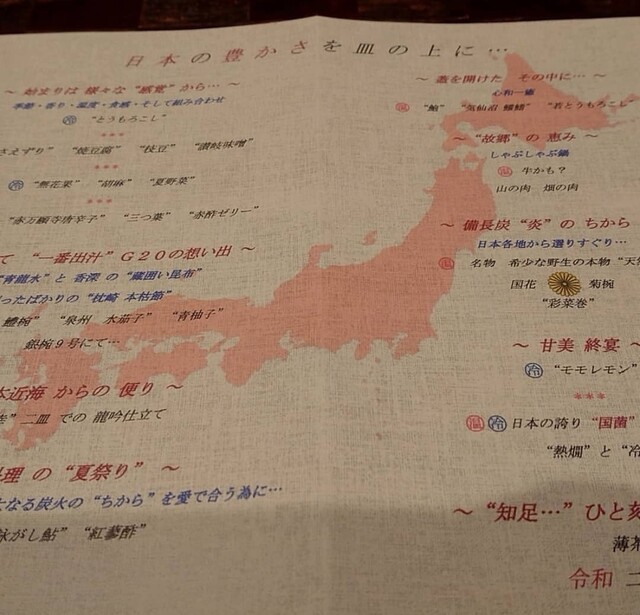 日本の豊かさを皿の上に…
～ 始まりは 様々な “感覚” から… ～
季節・香り・温度・食感・そして組み合わせ
冷 “とうもろこし”
***
さえずり” “焼豆腐” “枝豆” “讃岐味噌”
***
冷 “無花果” “胡麻” “夏野菜”
***
“赤万願寺唐辛子” “三つ葉” “赤酢ゼリー”
て “一番出汁” G20の想い出 ～
“青龍水” と 香深 の “蔵囲い昆布”
ったばかりの “枕崎 本枯節”
鱧椀” “泉州 水茄子” “青柚子”
銀椀9号にて…
本近海 からの 便り ～
” 二皿 での 龍吟仕立て
理 の “夏祭り” ～
なる炭火の “ちから” を愛で合う為に…
泳がし鮎” “紅蓼酢”
～ 蓋を開けた その中に… ～
心和一椀
温 “鮑” “気仙沼 鱶鰭” “若とうもろこし”
～ “故郷” の 恵み ～
しゃぶしゃぶ鍋
温 牛かも？
山の肉 畑の肉
～ 備長炭 “炎” の ちから ～
日本各地から選りすぐり…
温 名物 希少な野生の本物 “天然
国花 菊椀
“彩菜巻”
～ 甘美 終宴 ～
冷 “モモレモン”
***
温 冷 日本の誇り “国菌”
“熱燗” と “冷
～ “知足…” ひと刻
薄茶
令和 二